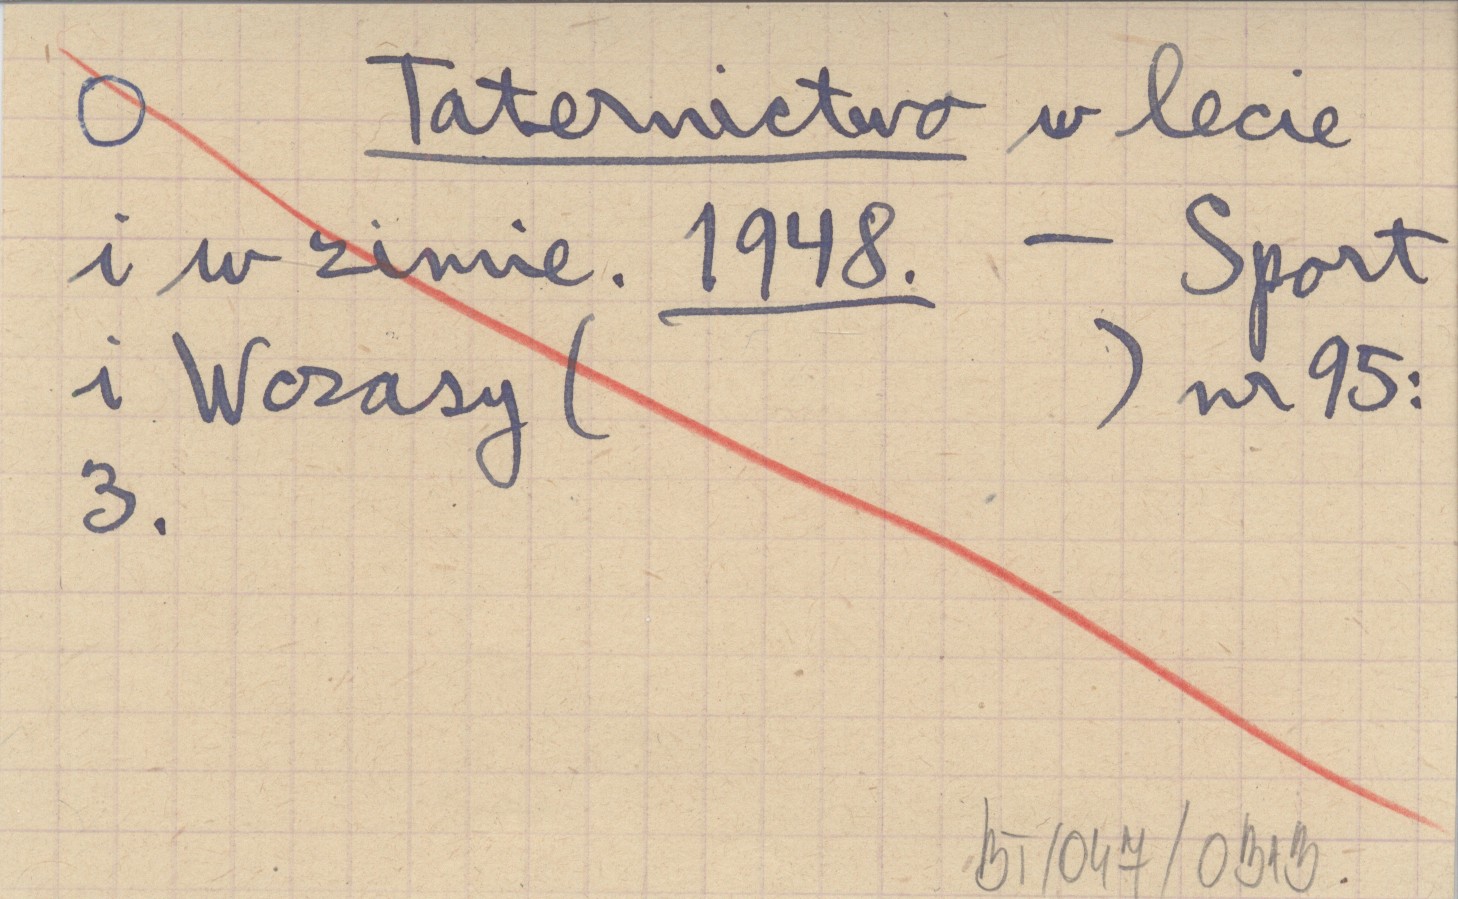 O Taternictwo w lecie
i w zimie. 1948. — Sport
i Wczasy (          ) nr 95:
3.
BT/047/0313.